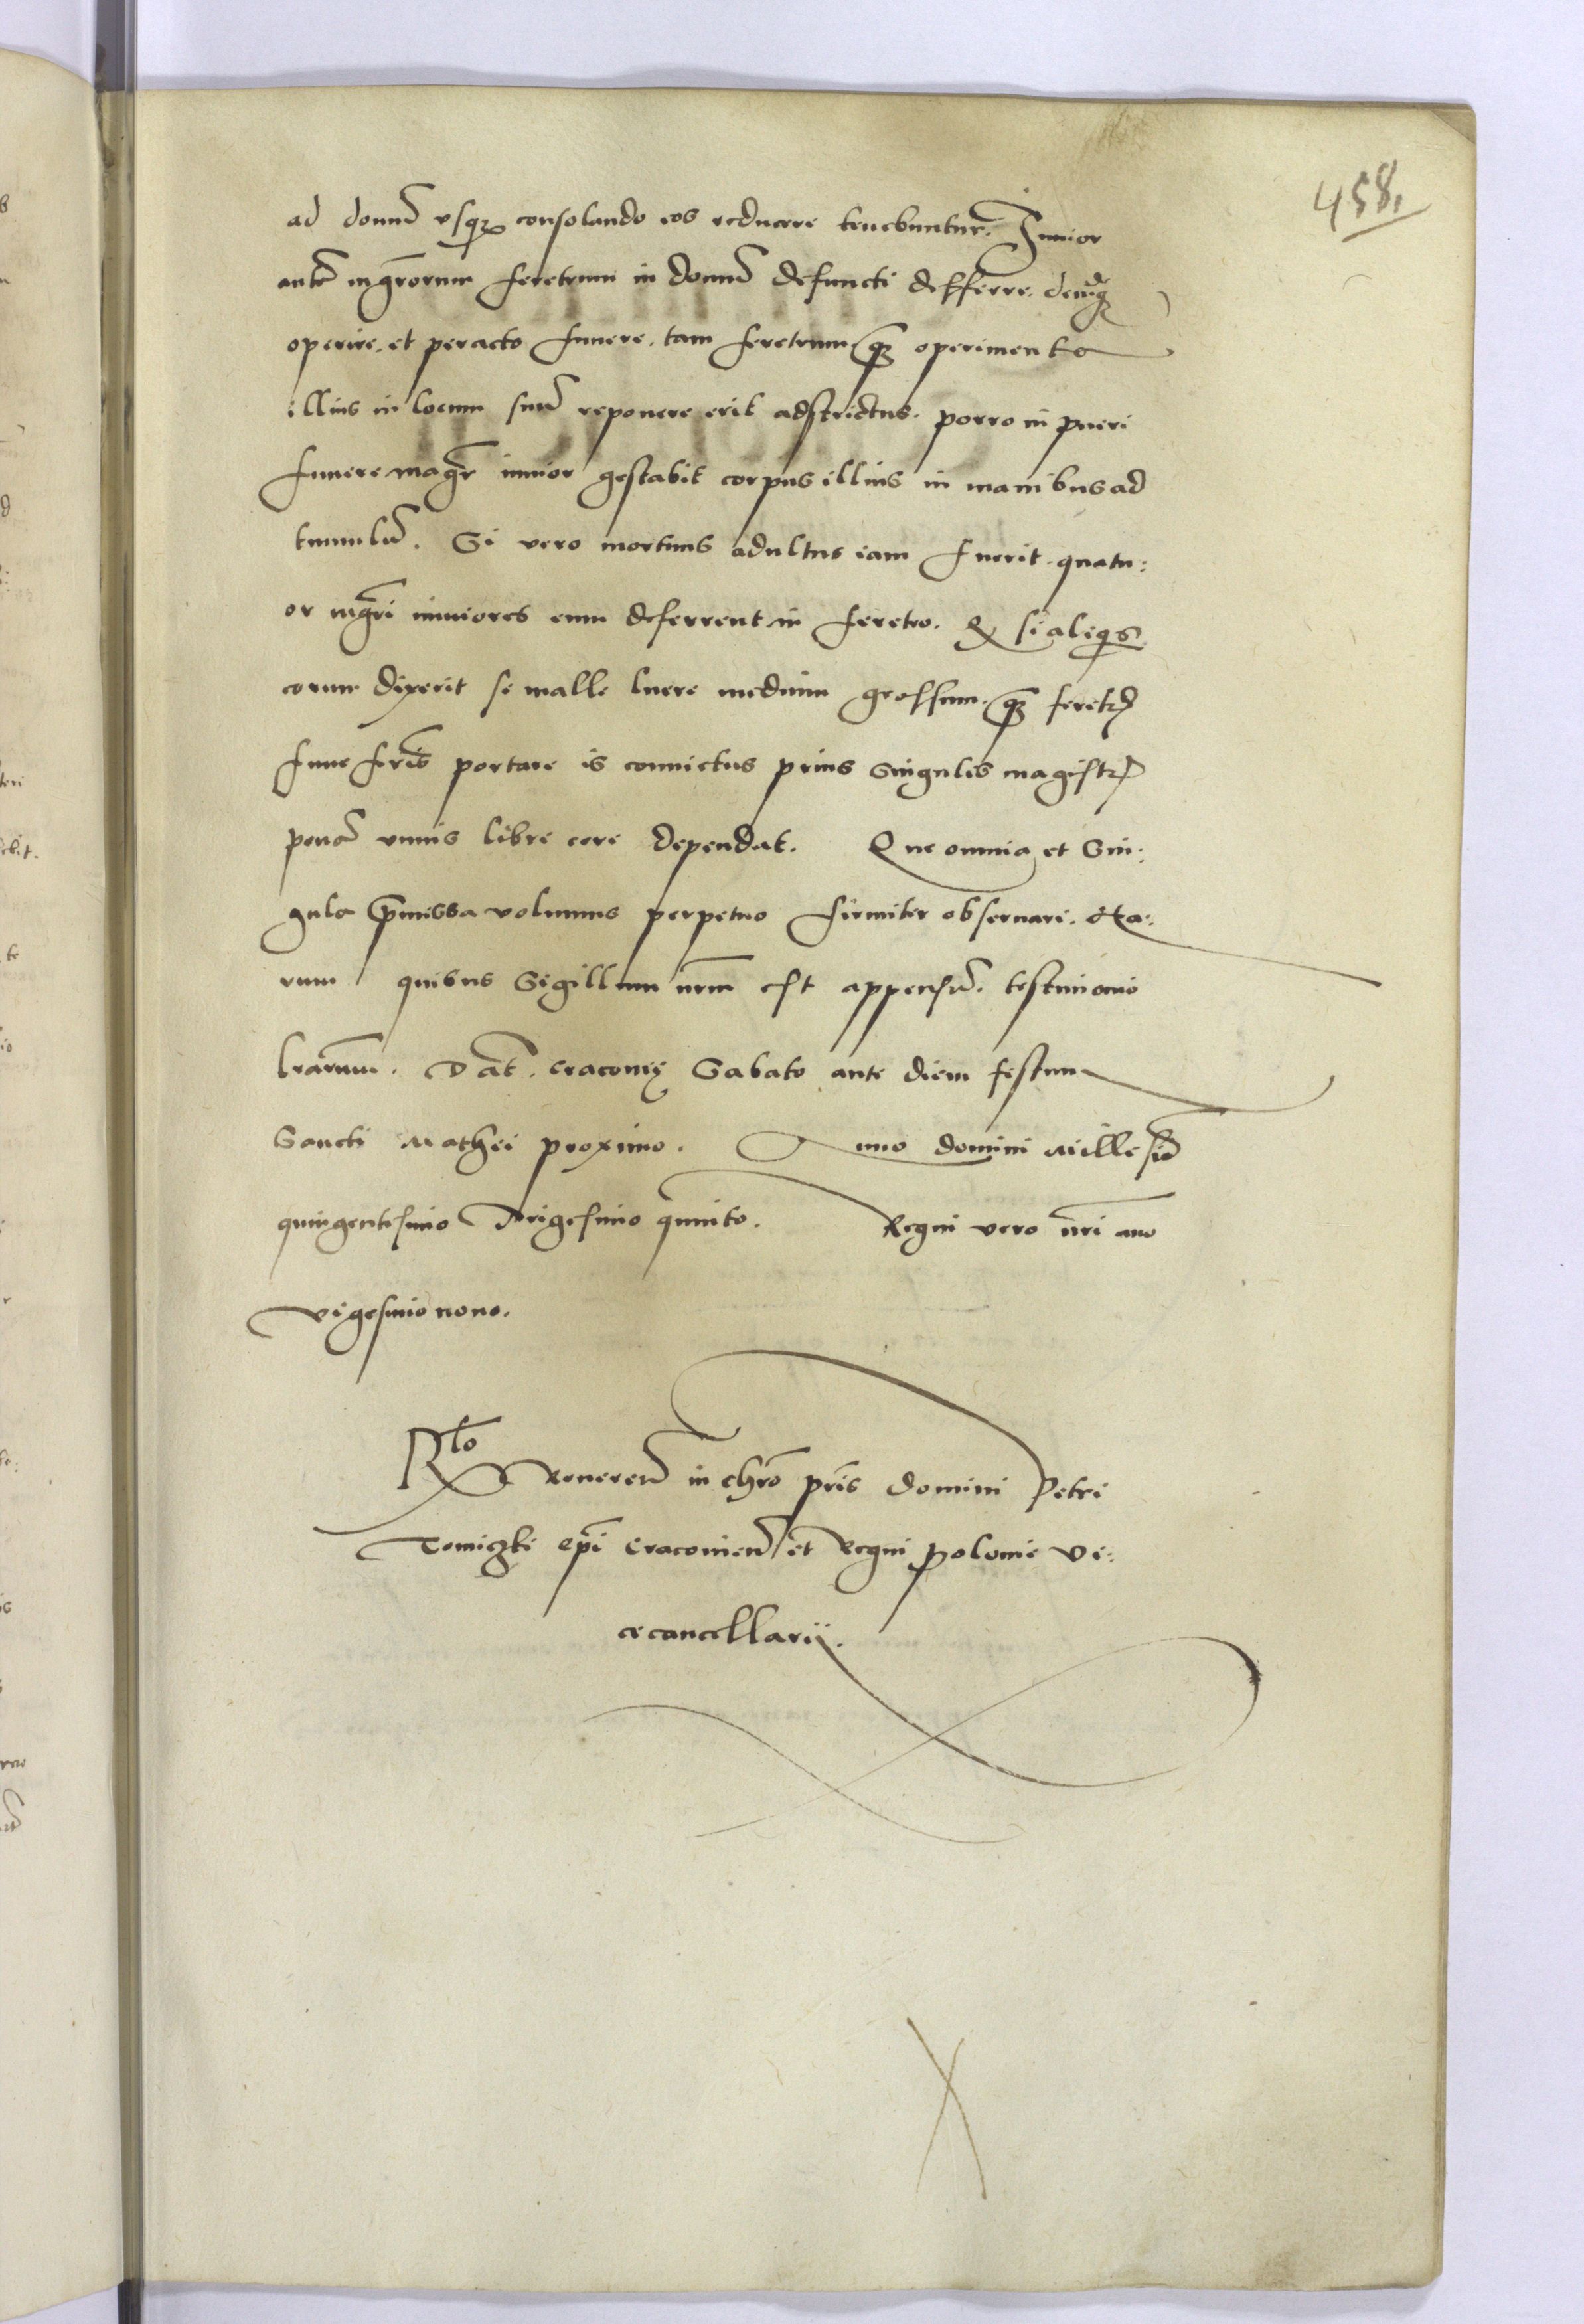 458
ad domũ vsqꝫ consolando eos reducere tenebuntur. Iunior
autẽ mgr̃orum feretrum in domũ defuncti defferre. deinde
operire, et peracto funere, tam feretrum qꝫ operimenta
illius in locum suũ reponere erit adstrictus. porro in pueri
funere magr̃ iunior gestabit corpus illius in manibus ad
tumulũ. Si vero mortuus adultus iam fuerit. quatu:
or mgr̃i iuniores eum deferrent in feretro. Q̃ si aliqis
eorum dixerit se malle luere medium grossum. qꝫ feretꝝ
funeferis portare is conuictus prius Singulis magistꝝ
penã vnius libre cere dependat. Que omnia et Sin:
gula p̃missa volumus perpetuo firmiter obseruari. Ha:
rum quibus Sigillum nr̃m est appensũ. testimonio
lr̃arum. Dat̃. Cracouię Sabato ante diem festum
Sancti Mathei proximo. Anno domini Millesiõ
quingentesimo Trigesimo quinto. Regni vero nr̃i ano
vigesimo nono.
Rlo Reueren̄ in chr̃o pr̃is domini Petri
Tomiczki ep̃i Cracouien̄ et Regni Polonie Vi:
cecancellarij.